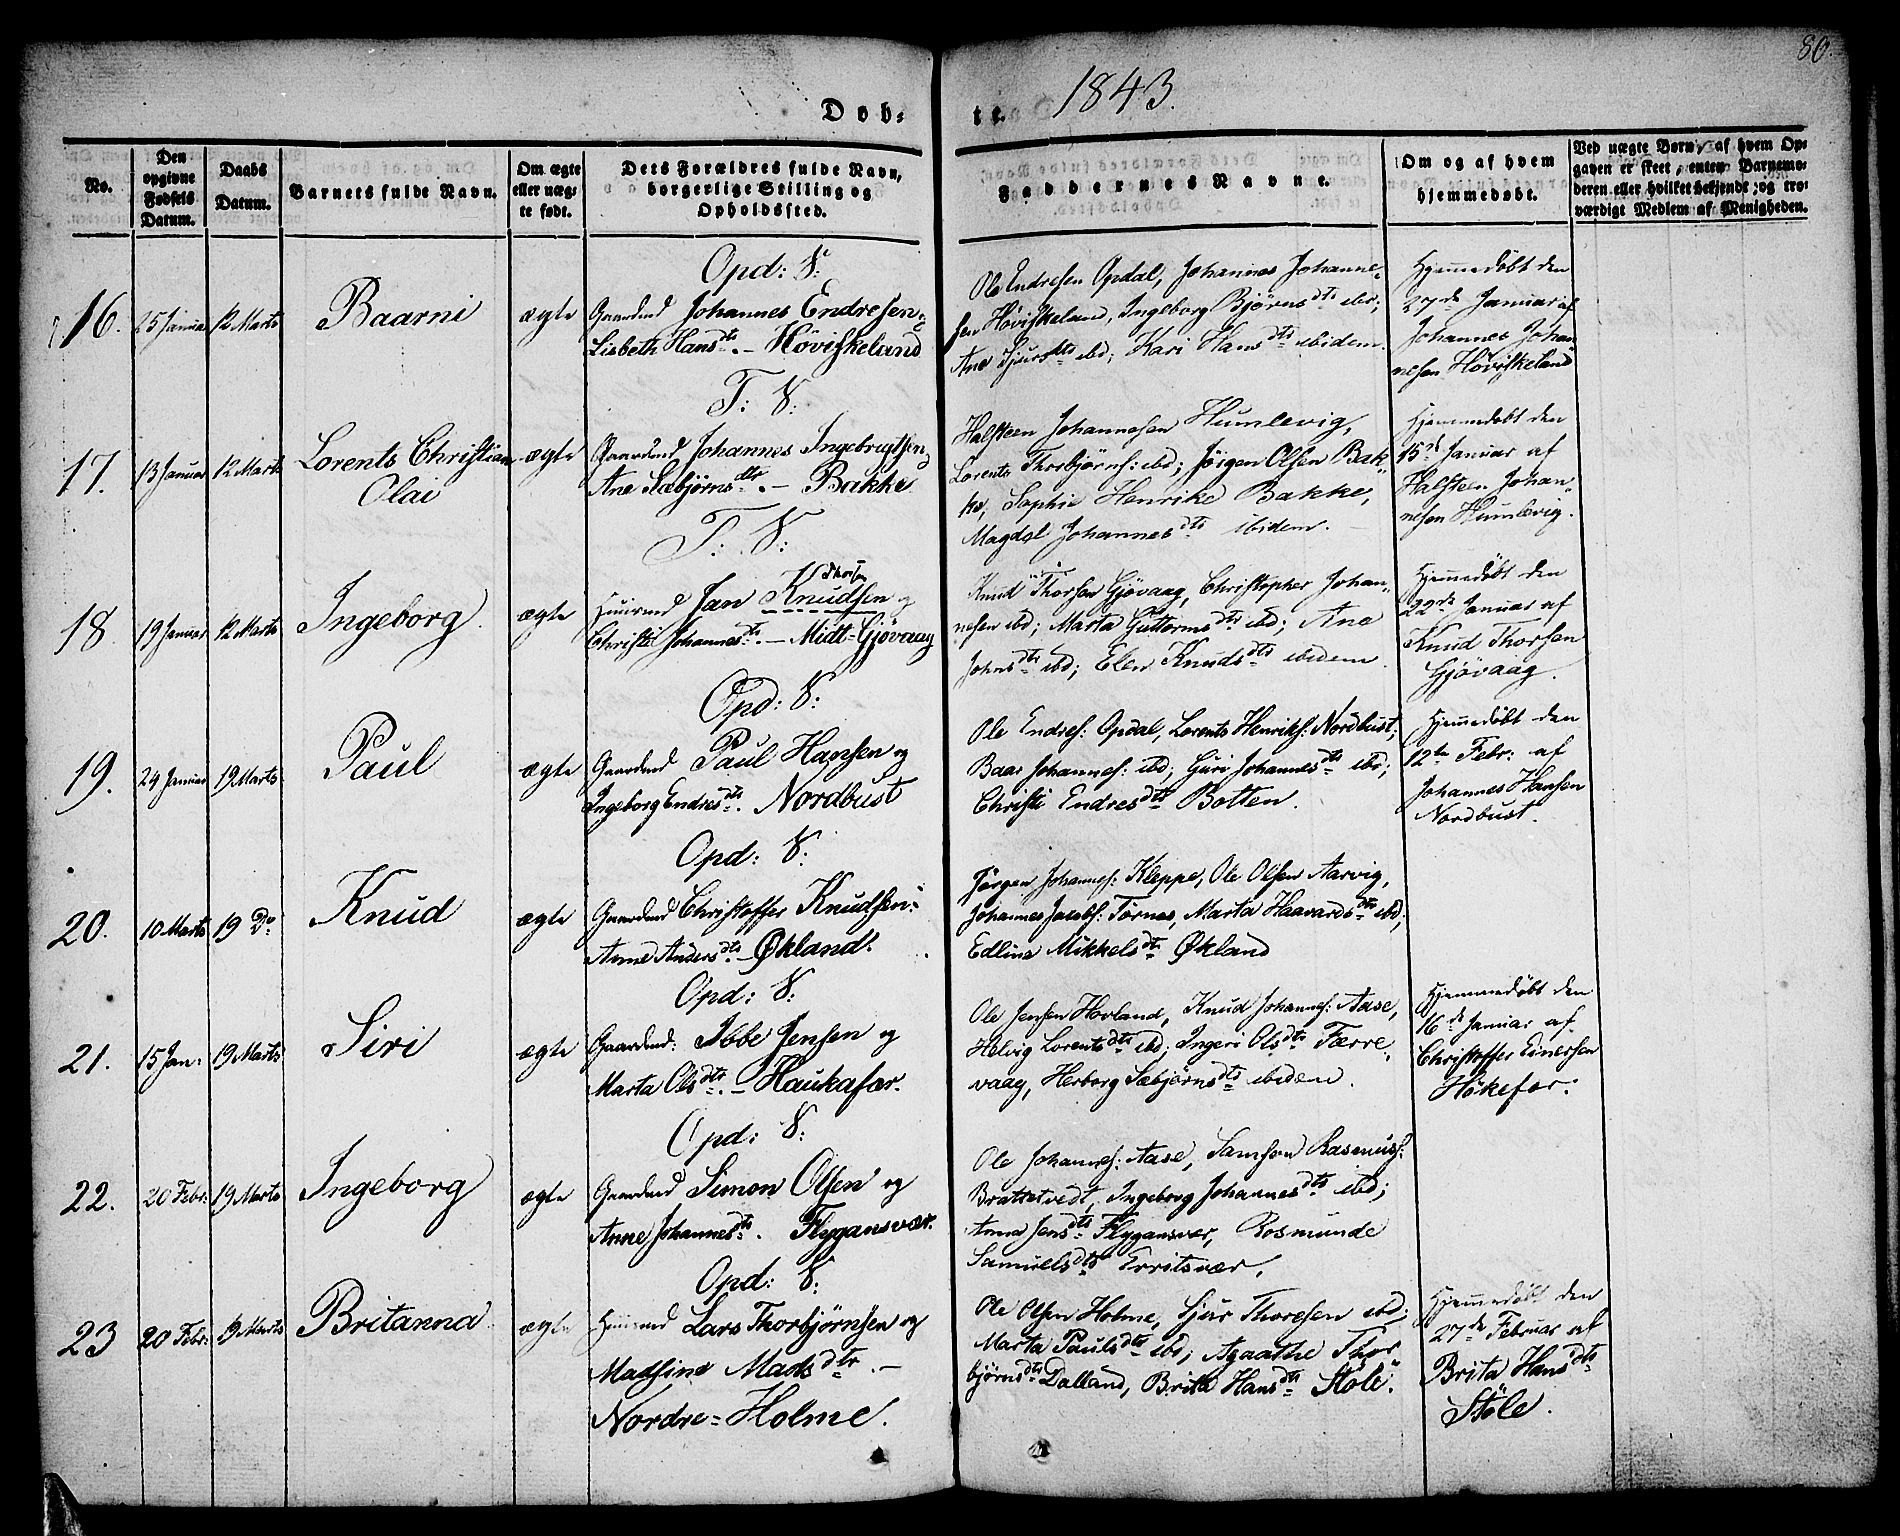 80.
1843.
Døb-
te.
No.
Den opgivne Fødsels Datum.
Daabs Datum.
Barnets fulde Navn.
Om ægte eller uægte født.
Dets Forældres fulde Navn, borgerlige Stilling og Opholdssted.
Faddernes Navne.
Om og af hvem hjemmedøbt.
Ved uægte Børn, af hvem Opgaven er skeet, enten Barnemoderen eller hvilket bekjendt og troværdigt Medlem af Menigheden.
Opd: V:
16. 25 Januar 12 Marts Baarni ægte
Gaardmd Johannes Endresen
Lisbeth Hansdtr. - Höviskeland
Ole Endresen Opdal, Johannes Johanne-
sen Höviskeland, Ingeborg Bjørnsdtr ibd;
Ane Sjursdtr ibd; Kari Hansdtr ibidem.
Hjemmedöbt den
27de Januar af
Johannes Johan-
nesen Höviskeland
T: V:
17. 13 Januar 12 Marts Lorents Christian
Olai
ægte
Gaardmd Johannes Ingebrigtsen
Ane Sæbjørnsdtr. - Bakke
Halsteen Johannesen Humlevig,
Lorents Thorbjørns: ibd; Jörgen Olsen Bak-
ke, Sophie Henrike Bakke,
Magdal Johannesdtr ibidem. -
Hjemmedöbt den
15de Januar af
Halsteen Johan-
nesen Humlevig.
T: V:
18. 19 Januar 12 Marts Ingeborg. ægte
Thorsen
Huusmd Jan Knudsen og
Christi Johannesdtr. - Midt-Gjövaag
Knud Thorsen Gjövaag, Christopher Johan-
nesen ibd; Marta Guttormsdtr ibd; Ane
Johnsdtr ibd; Elen Knudsdtr ibidem.
Hjemmedöbt den
22de Januar af
Knud Thorsen
Gjövaag.
Opd: V:
19. 24 Januar 19 Marts Paul ægte
Gaardmd Paul Hansen og
Ingeborg Endresdtr. Nordbust
Ole Endres: Opdal, Lorents Henriks: Nordbust;
Baar Johannes: ibd; Guri Johannesdtr ibd;
Christi Endresdtr Botten.
Hjemmedöbt den
12te Febr: af
Johannes Hansen
Nordbust.
Opd: V:
20. 10 Marts 19 Do Knud ægte
Gaardmd Christoffer Knudsen
Anne Andersdtr - Økland.
Jørgen Johannes: Kleppe, Ole Olsen Aarvig,
Johannes Jacobs: Tornes, Marta Haavardsdtr ibd;
Edline Mikkelsdtr Økland
Opd: V:
21. 15 Jan: 19 Marts Siri ægte
Gaardmd: Ibbe Jensen og
Marta Olsdtr. - Haukafær.
Ole Jensen Hovland, Knud Johannes: Aase,
Helvig Lorentsdtr ibd; Ingeri Olsdtr Færre-
vaag, Herborg Sæbjörnsdtr ibidem.
Hjemmedöbt den
16de Januar af
Christoffer Einersen
Hökefær.
Opd: V:
22. 20 Febr: 19 Marts Ingeborg ægte
Gaardmd Simon Olsen og
Anne Johannesdtr. Flygansvær.
Ole Johannes: Aase, Samson Rasmuss:
Brattetvedt, Ingeborg Johannesdtr ibd;
Anna Jensdtr Flygansver, Rosmunde
Samuelsdtr Erritsvær.
Opd: V:
23 20 Febr: 19 Marts Britanna ægte
Huusmd Lars Thorbjørnsen og
Madsine Madsdtr. -
Nordre-Holme.
Ole Olsen Holme, Sjur Thoresen ibd;
Marta Paulsdtr ibd; Agaathe Thor
björnsdtr Dalland, Brita Hansdtr Støle.
Hjemmedöbt den
27de Februar af
Brita Hansdtr
Støle.